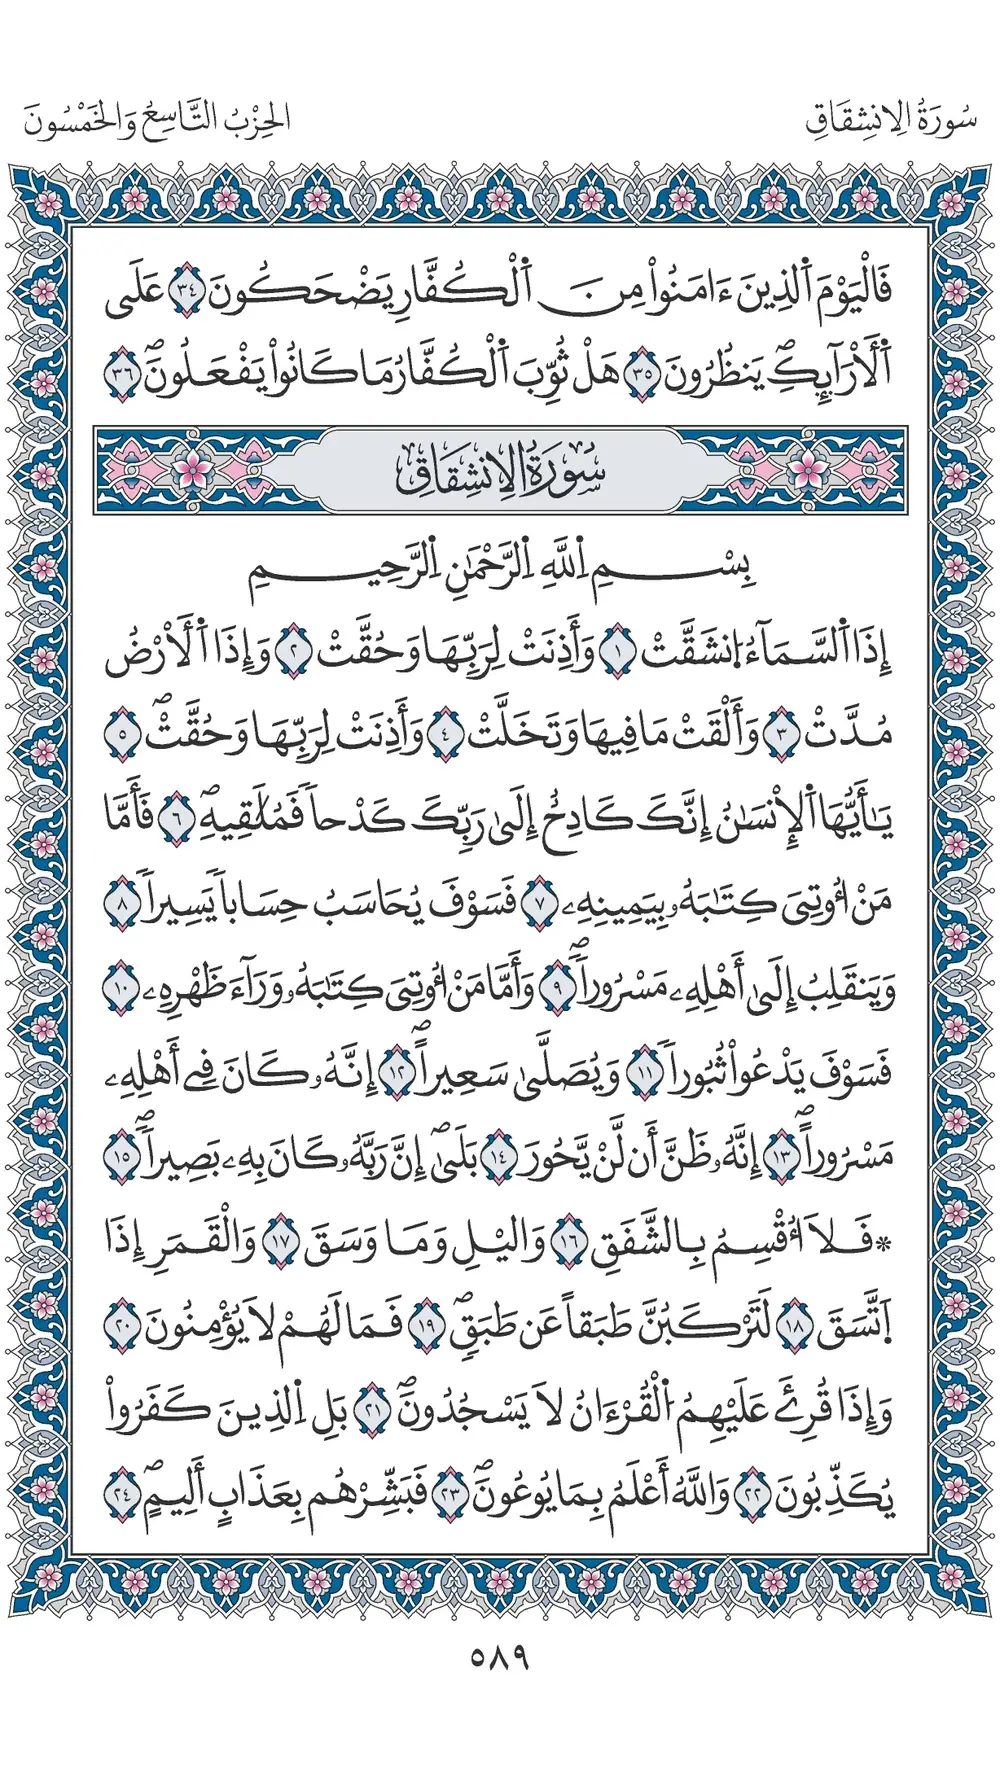 سُورَةُ الِانشِقَاقِ
الحِزْبُ التَّاسِعُ وَالخَمْسُونَ
فَالْيَوْمَ اَ۬لذِينَ ءَامَنُواْ مِنَ اَ۬لْكُفّ۪ارِ يَضْحَكُونَ ٣٤ عَلَي
اَ۬لَارَآئِكِۖ يَنظُرُونَ ٣٥ هَلْ ثُوِّبَ اَ۬لْكُفَّارُ مَا كَانُواْ يَفْعَلُونَۖ ٣٦
سُورَةُ الِانشِقَاقِ
بِسْمِ اِ۬للَّهِ اِ۬لرَّحْمَٰنِ اِ۬لرَّحِيمِ
إِذَا اَ۬لسَّمَآءُ اُ۪نشَقَّتْ ١ وَأَذِنَتْ لِرَبِّهَا وَحُقَّتْ ٢ وَإِذَا اَ۬لَارْضُ
مُدَّتْ ٣ وَأَلْقَتْ مَا فِيهَا وَتَخَلَّتْ ٤ وَأَذِنَتْ لِرَبِّهَا وَحُقَّتْۖ ٥
يَٰأَيُّهَا اَ۬لِانسَٰنُ إِنَّكَ كَادِحٌ إِلَىٰ رَبِّكَ كَدْحاٗ فَمُلَٰقِيهِۖ ٦ فَأَمَّا
مَنُ ا۟وتِيَ كِتَٰبَهُۥ بِيَمِينِهِۦ ٧ فَسَوْفَ يُحَاسَبُ حِسَاباٗ يَسِيراٗ ٨
وَيَنقَلِبُ إِلَىٰ أَهْلِهِۦ مَسْرُوراٗۖ ٩ وَأَمَّا مَنُ ا۟وتِيَ كِتَٰبَهُۥ وَرَآءَ ظَهْرِهِۦ ١٠
فَسَوْفَ يَدْعُواْ ثُبُوراٗ ١١ وَيُصَلَّىٰ سَعِيراًۖ ١٢ اِنَّهُۥ كَانَ فِے أَهْلِهِۦ
مَسْرُوراًۖ ١٣ اِنَّهُۥ ظَنَّ أَن لَّنْ يَّحُورَ ١٤ بَلَىٰٓۖ إِنَّ رَبَّهُۥ كَانَ بِهِۦ بَصِيراٗۖ ١٥
* فَلَآ أُقْسِمُ بِالشَّفَقِ ١٦ وَاليْلِ وَمَا وَسَقَ ١٧ وَالْقَمَرِ إِذَا
اَ۪تَّسَقَ ١٨ لَتَرْكَبُنَّ طَبَقاً عَن طَبَقٖۖ ١٩ فَمَا لَهُمْ لَا يُؤْمِنُونَ ٢٠
وَإِذَا قُرِئَ عَلَيْهِمُ اُ۬لْقُرْءَانُ لَا يَسْجُدُونَۖ ٢١ بَلِ اِ۬لذِينَ كَفَرُواْ
يُكَذِّبُونَ ٢٢ وَاللَّهُ أَعْلَمُ بِمَا يُوعُونَۖ ٢٣ فَبَشِّرْهُم بِعَذَابٍ أَلِيمٍۖ ٢٤
٥٨٩